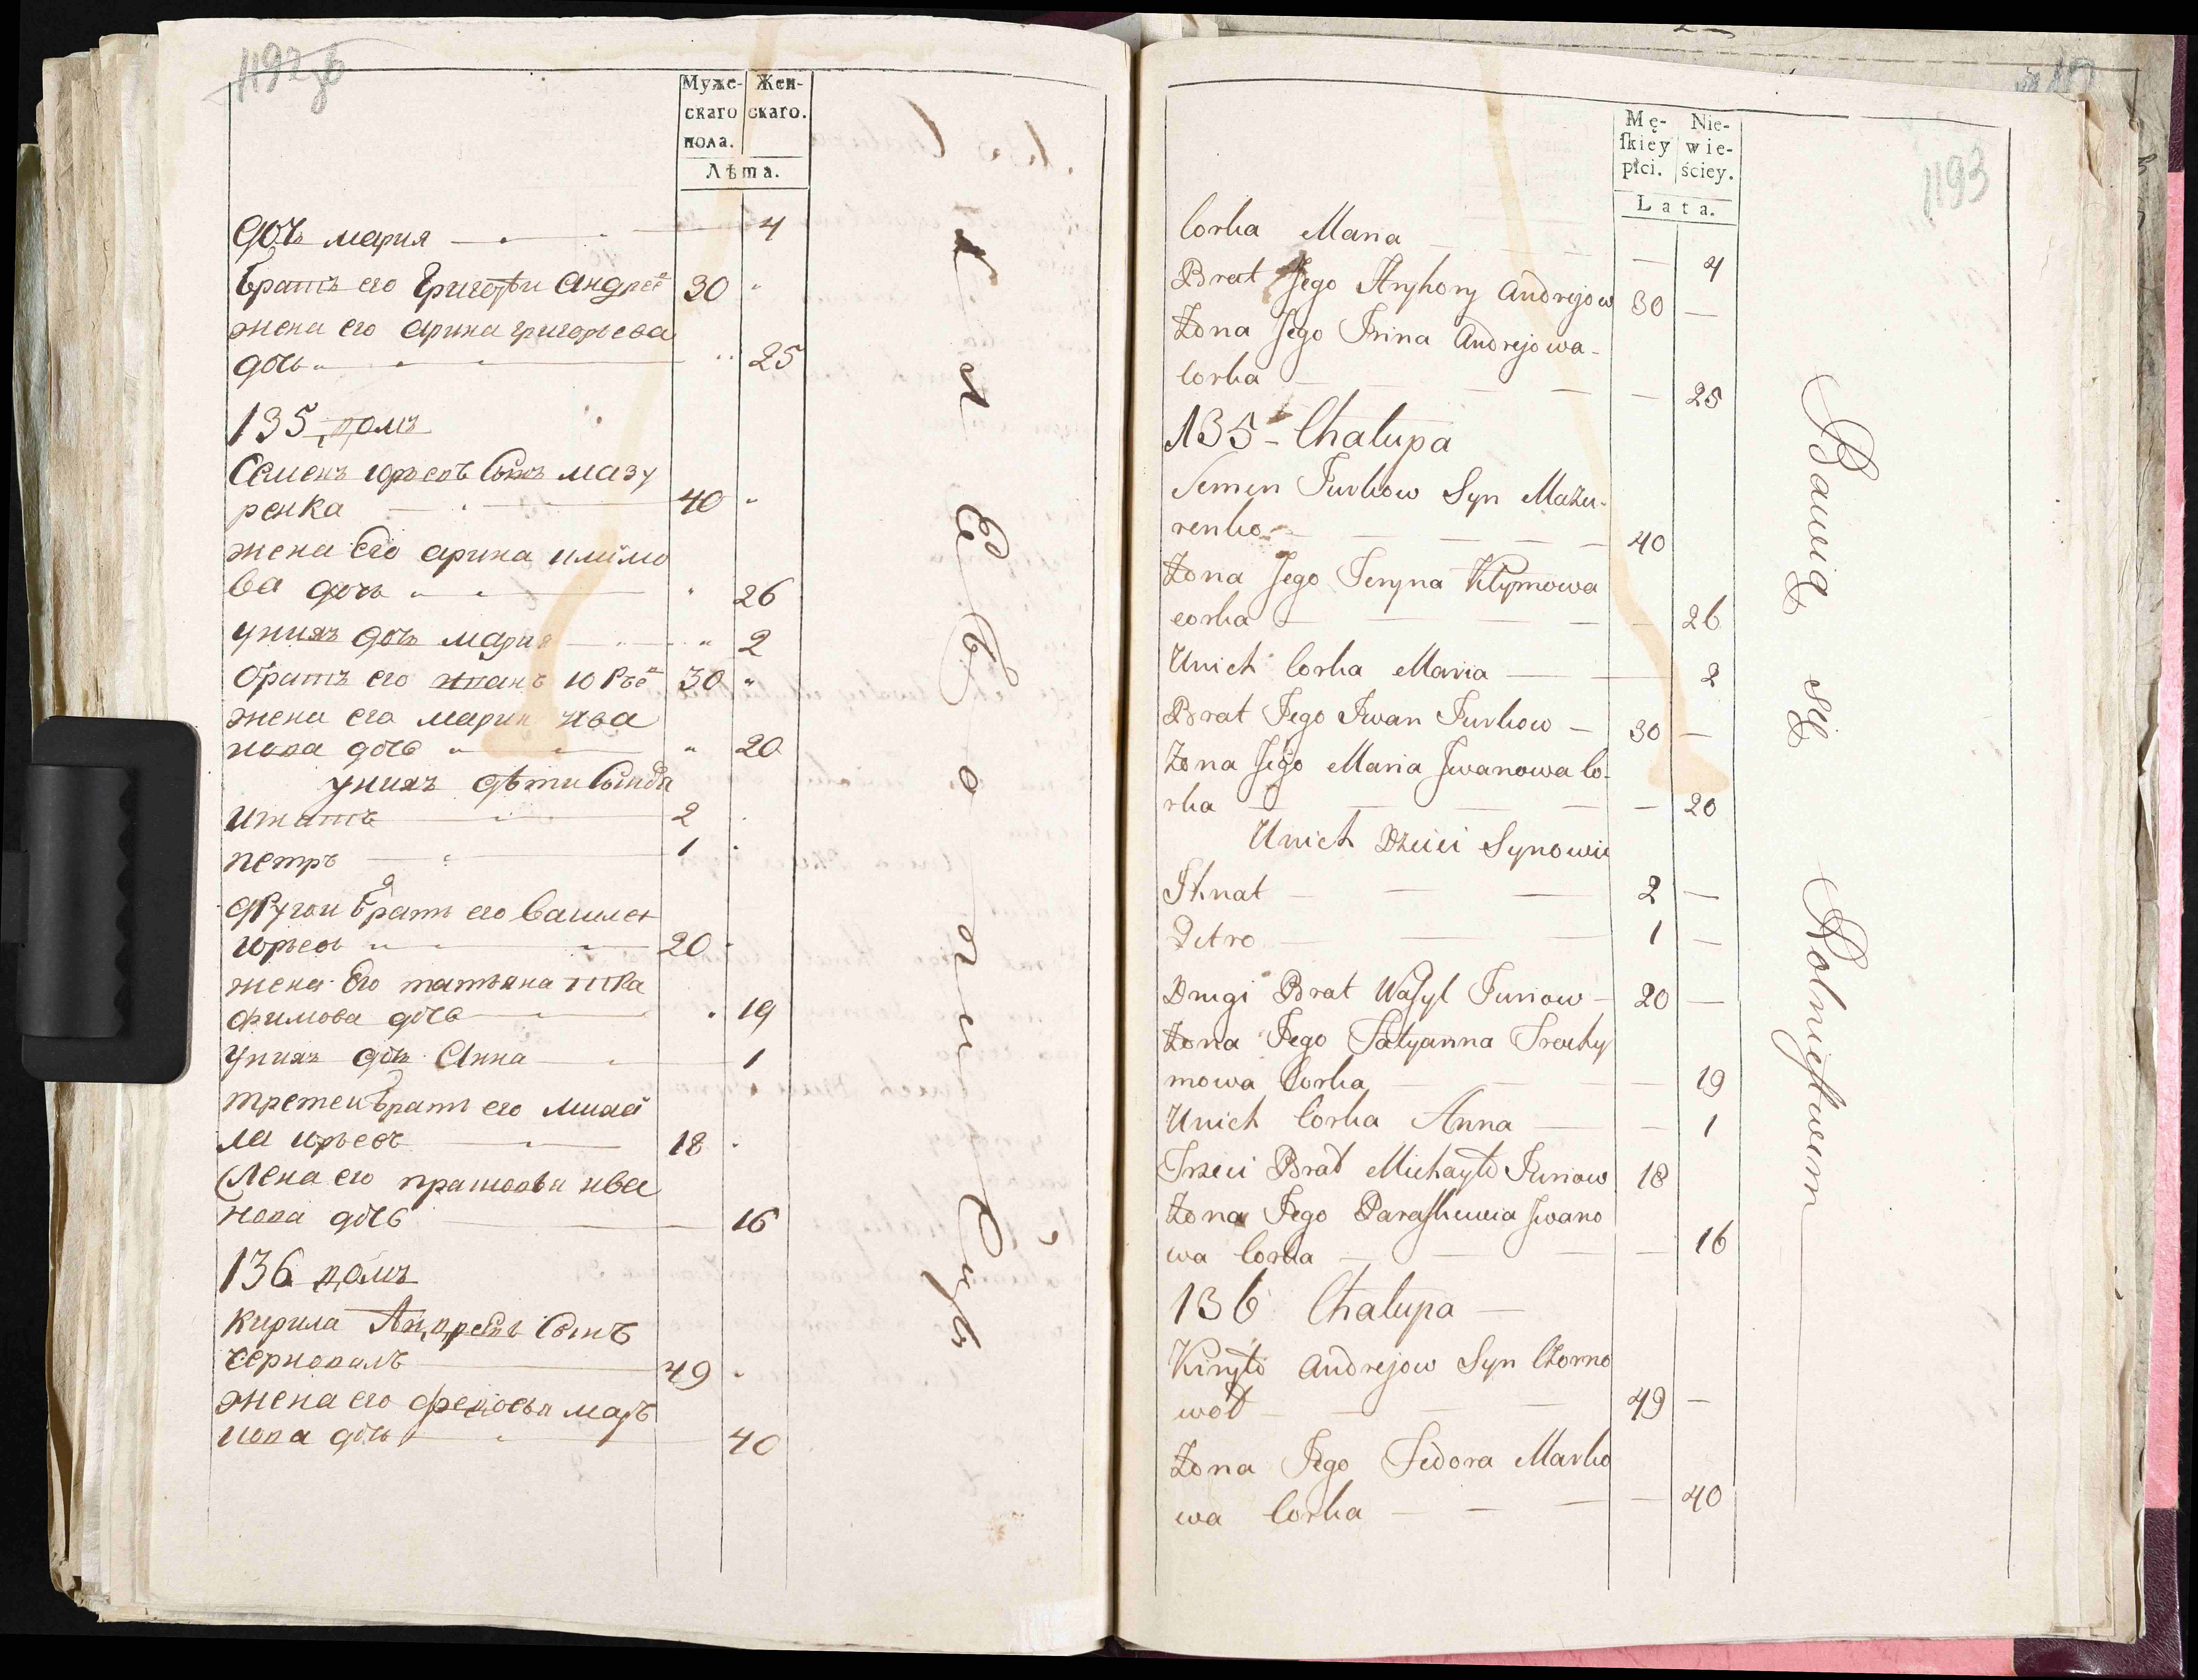 1192 об
Муже- Жен-
скаго скаго.
пола.
Лѣта.
дочь мария 4
братъ его Григорѣи Андрее 30
жена его арина григорьева
дочь 25
135 домъ
Семенъ юрьевъ Сынъ мазу
ренка 40
жена Его арина климо
ва дочь 26
униxъ дочь мария 2
братъ его иванъ юрье 30
жена его мария ива
нова дочь 20
унихъ дѣти Сыновя
игнатъ 2
петръ 1
другои братъ его Василеи
юрьевъ 20
жена Его татьяна тра
фимова дочь 19
унихъ дочь Анна 1
третеи братъ его михаи
ла юрьевъ 18
жена его прасковья ива
нова дочь 16
136 домъ
кирила Андреевъ Сынъ
черновалъ 49
жена его федосья мар
кова дочь 40
1193
Mę- Nie-
skiey wie-
płci. ściey.
Lata.
Corka Maria 4
Brat Jego Hryhory Andrejow 30
Żona Jego Irina Andrejowa
Corka 25
135 - Chalupa
Semen Jurkow Syn Mazu-
renko 40
Żona Jego Jeryna Klymowa
corka 26
Unich Corka Maria 2
Brat Jego Jwan Jurkow 30
Żona Jego Maria Jwanowa Co-
rka 20
Unich Dzieci Synowie
Ihnat 2
Petro 1
Drugi Brat Wasyl Juriow 20
Żona Jego Tatyanna Trochy
mowa Corka 19
Unich Corka Anna 1
Trzeci Brat Michayło Juriow 18
Żona Jego Paraskewia Jwano
wa Corka 16
136 Chalupa
Kiryło Andrejow Syn Czorno
woł 49
Żona Jego Fedora Marko
wa Corka 40
Bawią się Rolnictwem